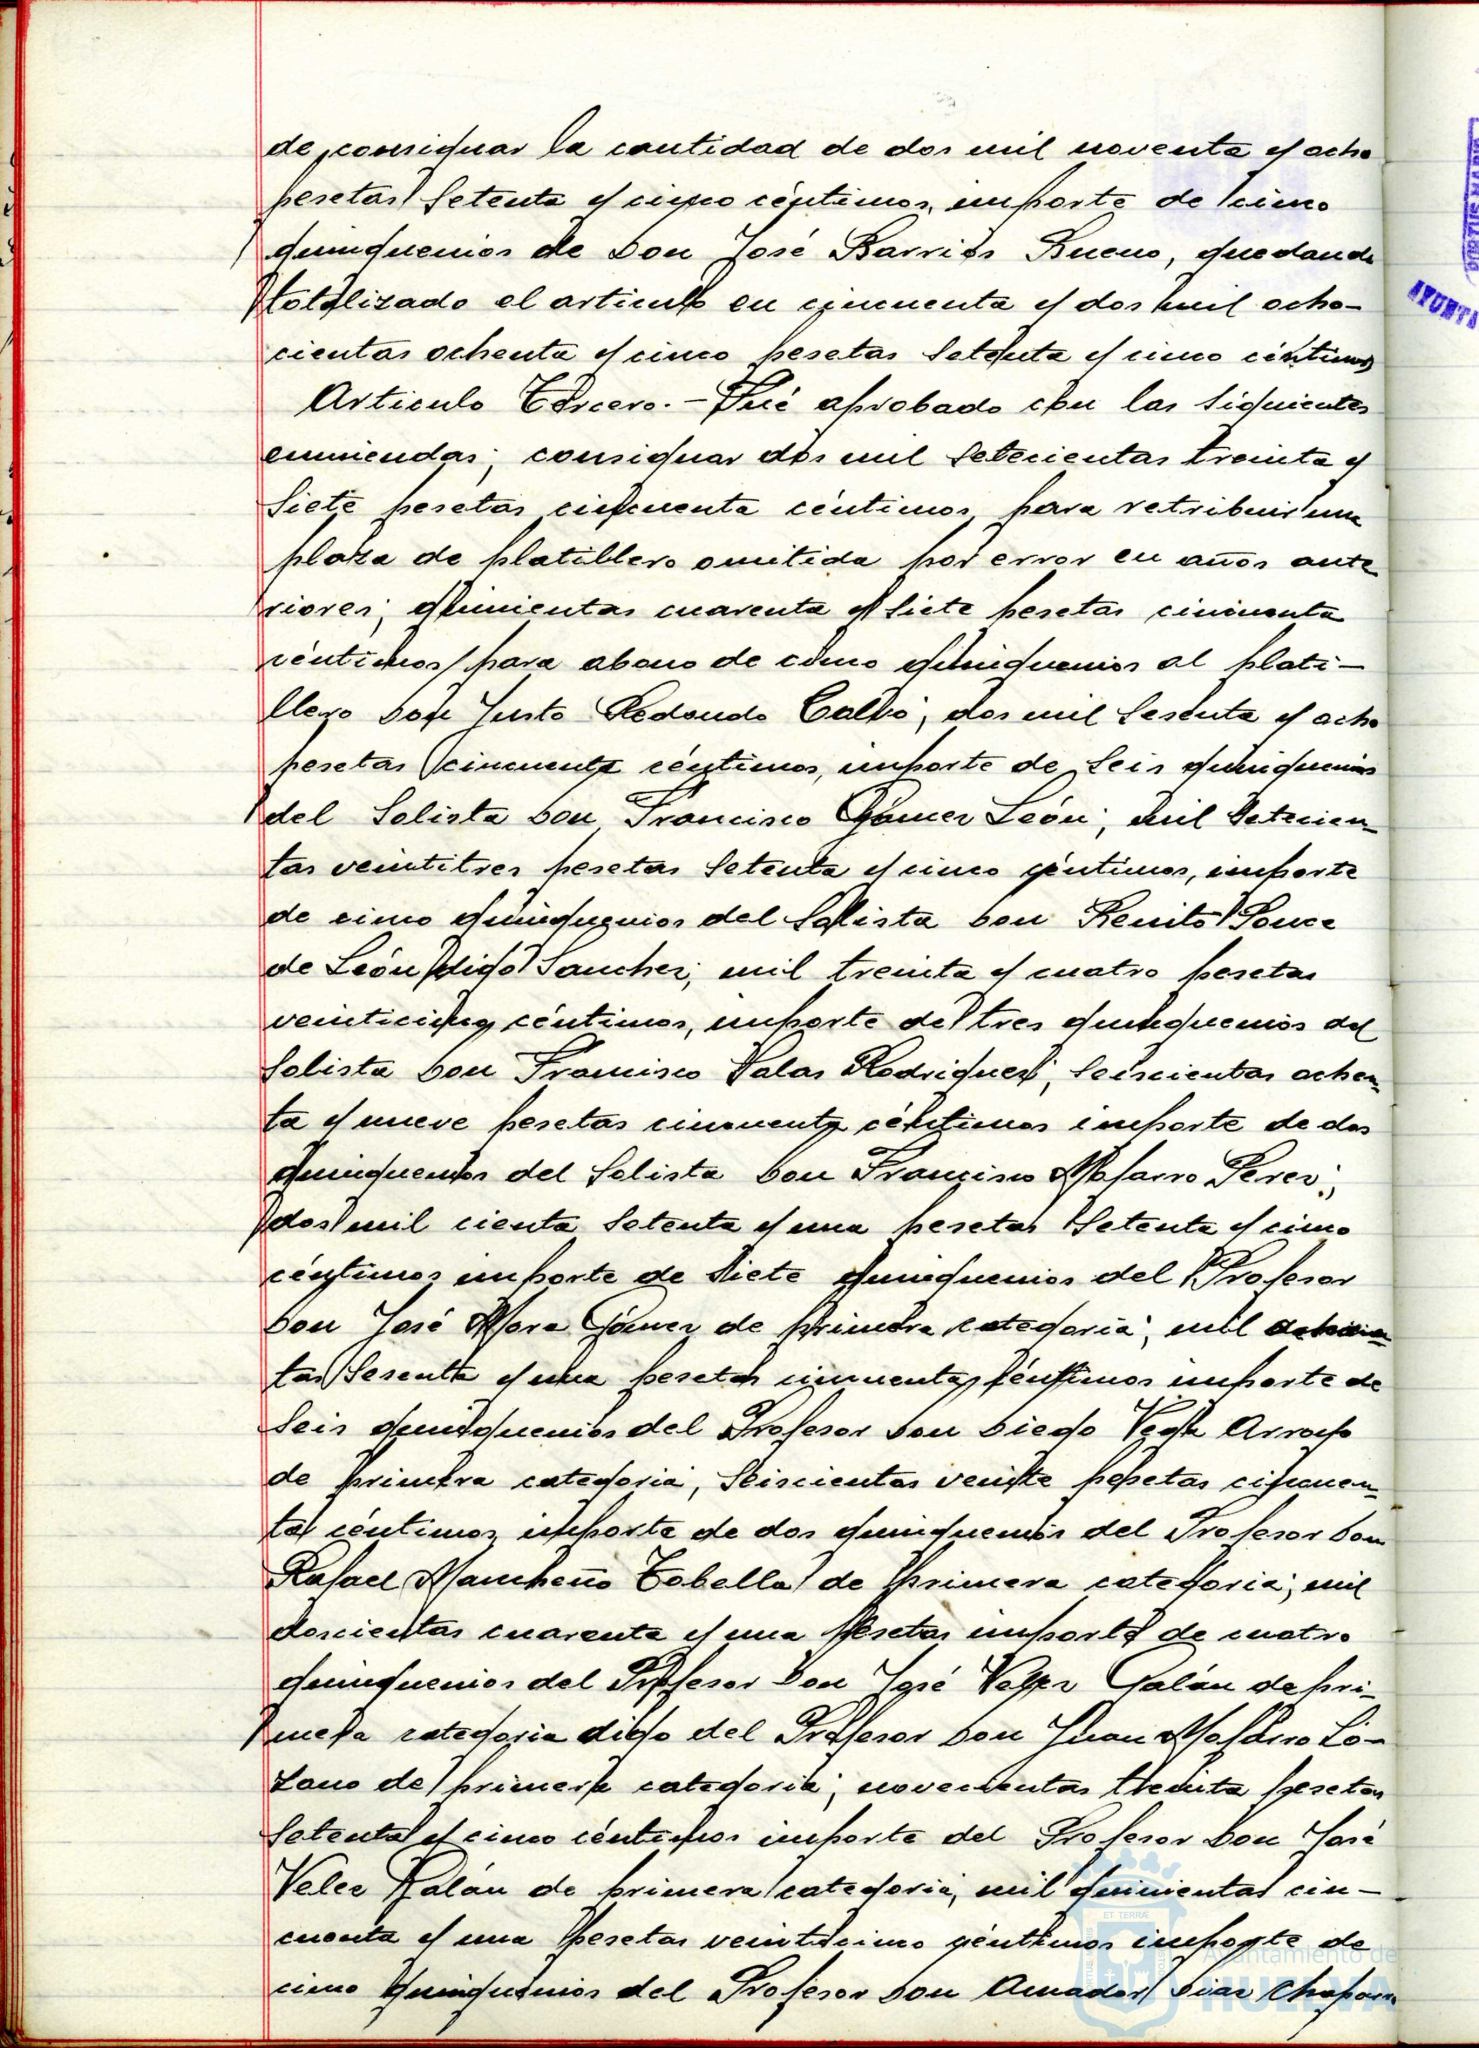 de consignar la cantidad de dos mil noventa y ocho
pesetas setenta y cinco céntimos, importe de cinco
quinquenios de Don José Barrios Bueno, quedando
totalizado el articulo en cincuenta y dos mil ocho-
cientas ochenta y cinco pesetas setenta y cinco céntimos
Articulo Tercero.- Fué aprobado con las siguientes
enmiendas; consignar dos mil setecientas treinta y
siete pesetas cincuenta céntimos para retribuir una
plaza de platillero omitida por error en años ante
riores; quinientas cuarenta y siete pesetas cincuenta
céntimos para abono de cinco quinquenios al plati-
llero Don Justo Redondo Calvo; dos mil sesenta y ocho
pesetas cincuenta céntimos, importe de seis quinquenios
del Solista Don Francisco Gómez León; mil setecien-
tas veintitres pesetas setenta y cinco céntimos, importe
de cinco quinquenios del Solista Don Benito Ponce
de León digo Sanchez; mil treinta y cuatro pesetas
veinticinco céntimos, importe de tres quinquenios del
Solista Don Francisco Salas Rodriguez; seiscientas ochen-
ta y nueve pesetas cincuenta céntimos importe de dos
quinquenios del Solista Don Francisco Mojarro Perez;
dos mil cienta setenta y una pesetas setenta y cinco
céntimos importe de siete quinquenios del Profesor
Don José Mora Gómez de primera categoria; mil
tas sesenta y una pesetas cincuenta céntimos importe de
seis quinquenios del Profesor Don Diego Vega Arroyo
de primera categoria; seiscientas veinte pesetas cincuen-
ta céntimos importe de dos quinquenios del Profesor Don
Rafael Mancheño Tobella de primera categoria; mil
doscientas cuarenta y una pesetas importe de cuatro
quinquenios del Profesor Don José Velez Galán de pri-
mera categoria digo del Profesor Don Juan Mojarro Lo-
zano de primera categoria; novecientas treinta pesetas
setenta y cinco céntimos importe del Profesor Don José
Velez Galán de primera categoria; mil quinientas cin-
cuenta y una pesetas veinticinco céntimos importe de
cinco quinquenios del Profesor Don Amador Diaz Chaparro
AYUNTA
ET TERRÆ
Ayuntamiento de
HUELVA